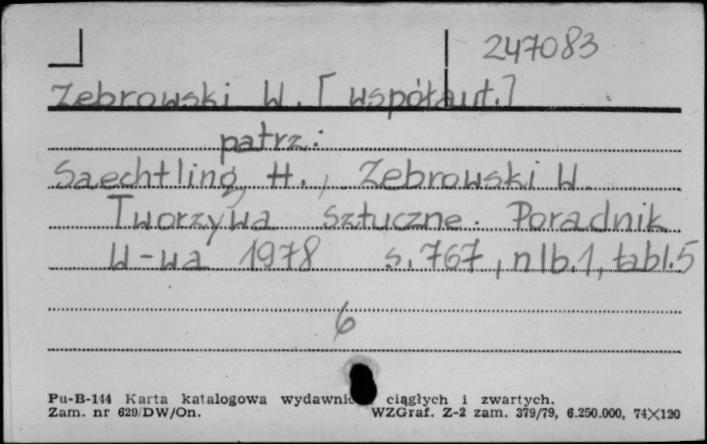 247083
Zebrowski W. [współaut.]
patrz:
Saechtling, H., Zebrowski W.
Tworzywa sztuczne. Poradnik
W-wa 1978 s. 767, nlb. 1, tabl. 5
6
Pu-B-144 Karta katalogowa ciągłych i zwartych.
Zam. nr 629/DW/On. WZGraf. Z-2 zam. 379/79, 6.250.000, 74×120